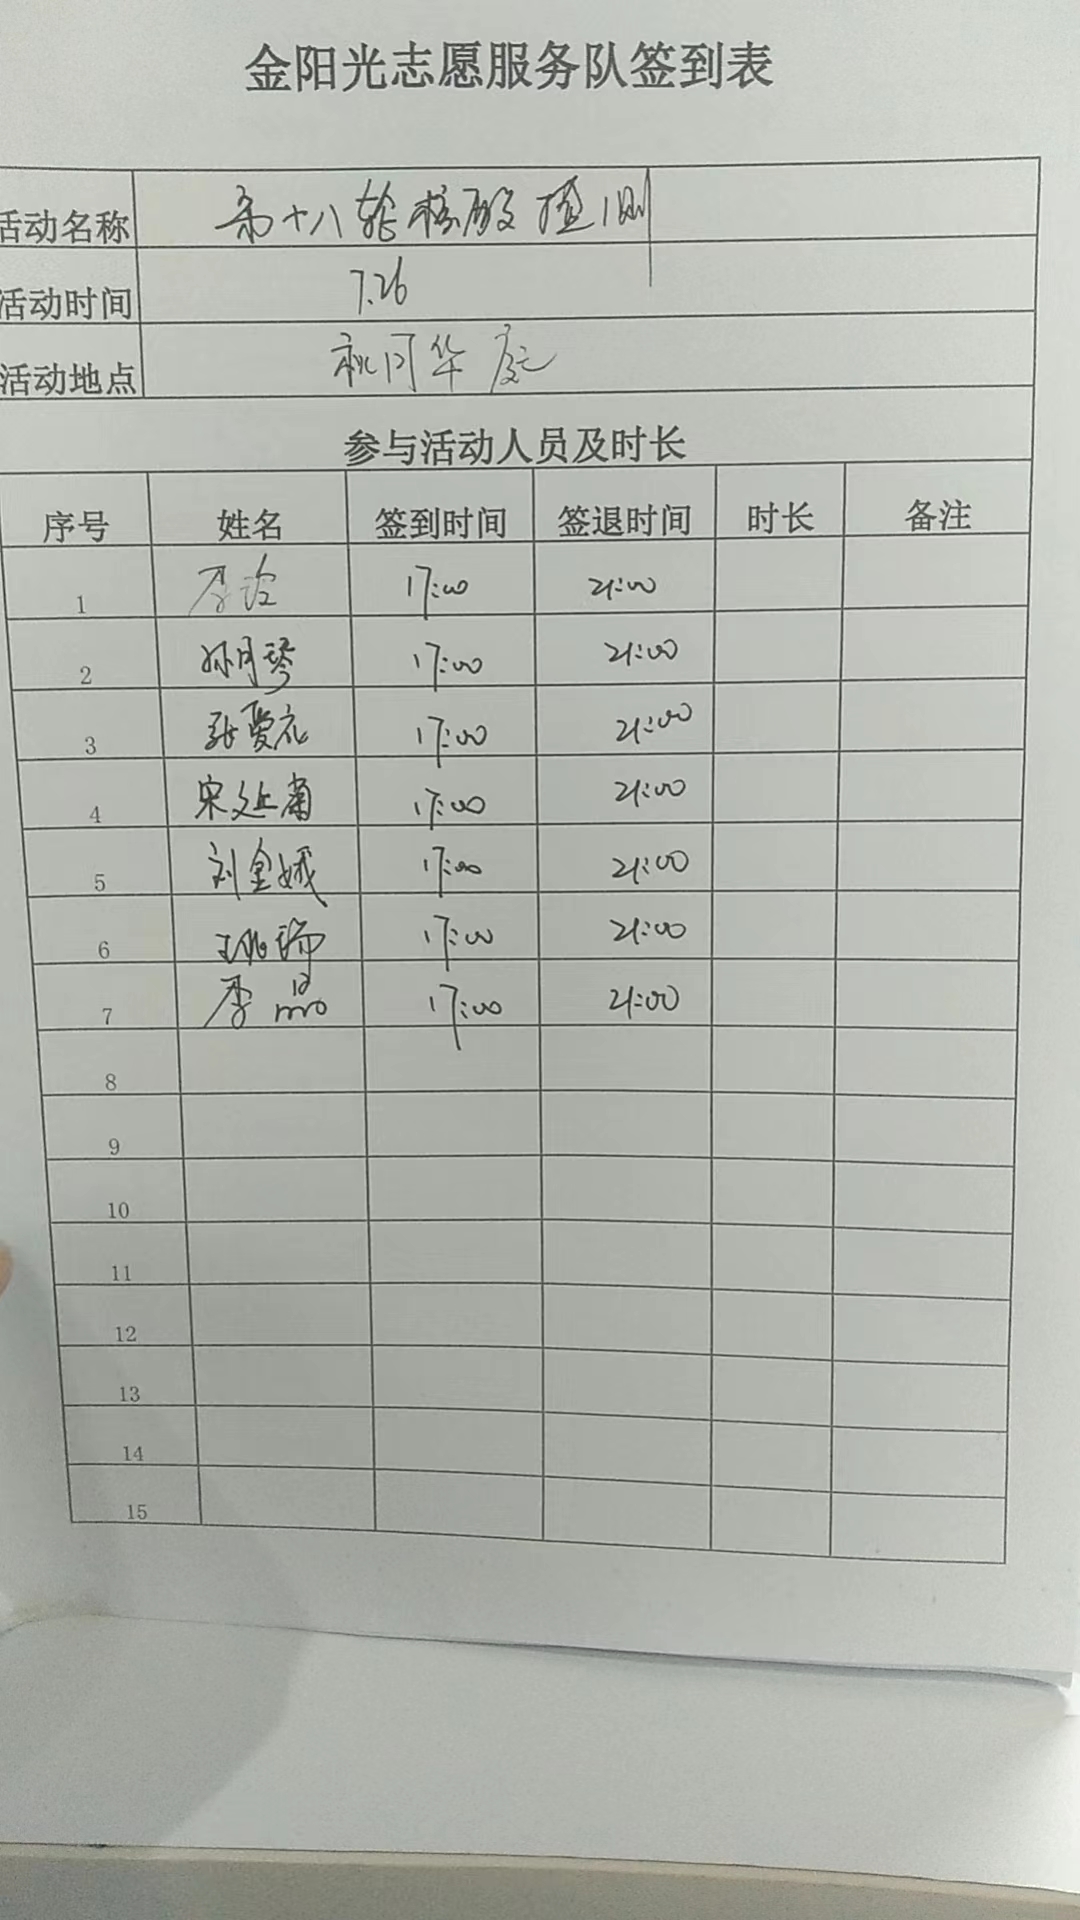 金阳光志愿服务队签到表
活动名称 第十八轮核酸检测
活动时间 7.26
活动地点 桃园华庭
参与活动人员及时长
序号 姓名 签到时间 签退时间 时长 备注
1 李 17:00 21:00
2 孙月琴 17:00 21:00
3 张爱花 17:00 21:00
4 宋延菊 17:00 21:00
5 刘金娥 17:00 21:00
6 王 17:00 21:00
7 李晶 17:00 21:00
8
9
10
11
12
13
14
15